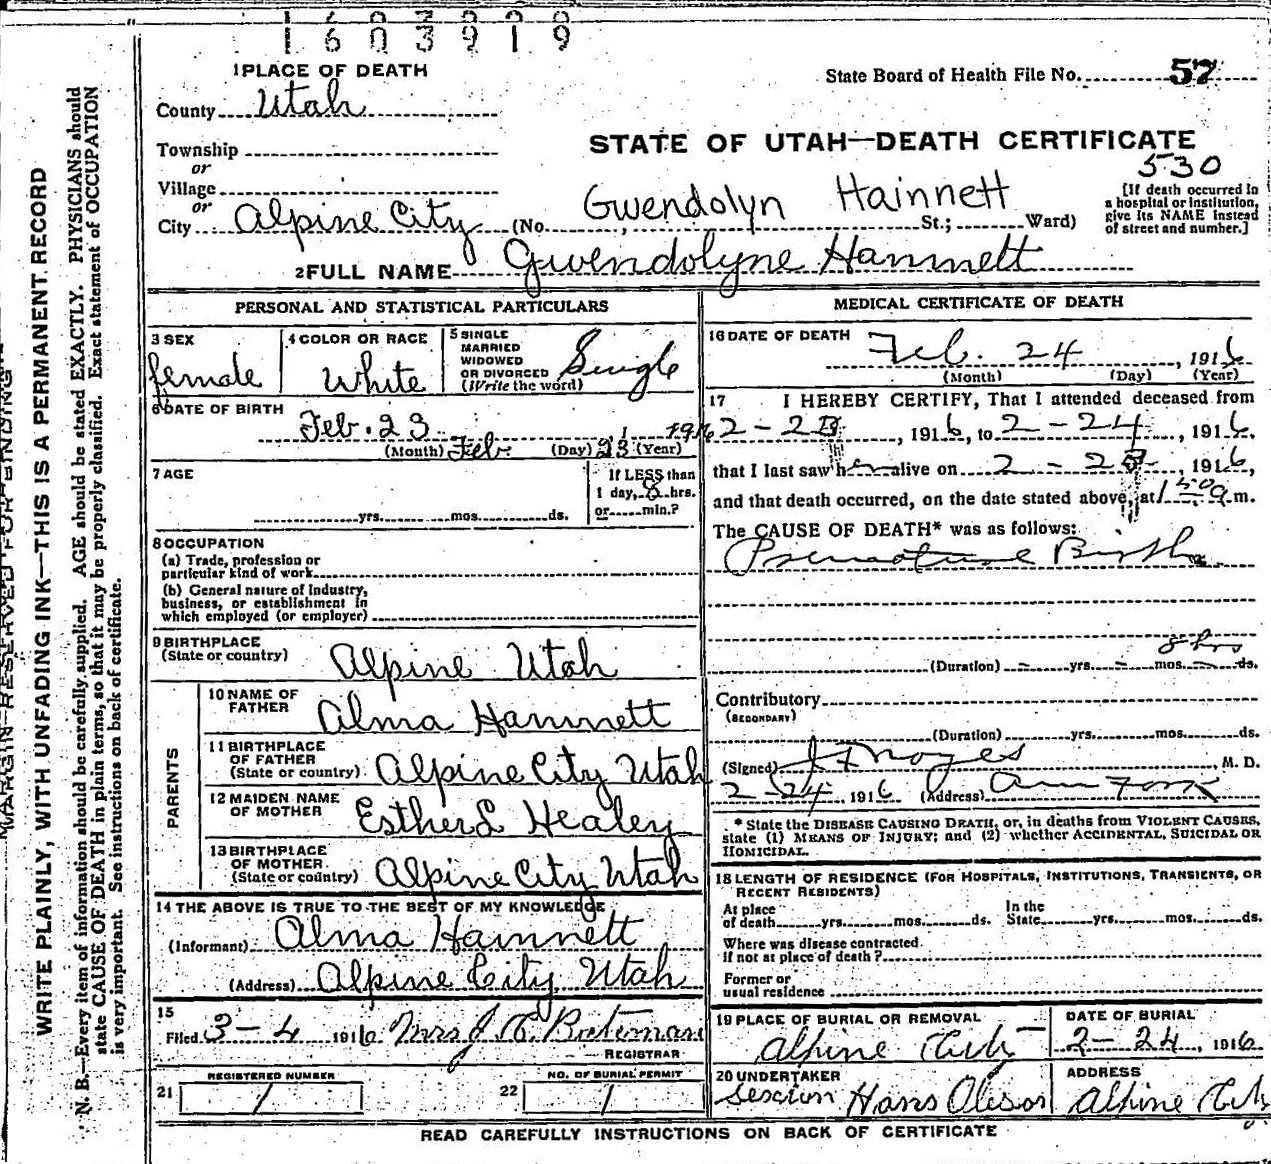 1603919
1 PLACE OF DEATH
State Board of Health File No. 57
County Utah
STATE OF UTAH—DEATH CERTIFICATE
Township
or
530
Village
or
Gwendolyn Hainnett
[If death occurred in a hospital or institution, give its NAME instead of street and number.]
City Alpine City (No. , St.; Ward)
2 FULL NAME Gwendolyne Hammett
PERSONAL AND STATISTICAL PARTICULARS
3 SEX female
4 COLOR OR RACE White
5 SINGLE MARRIED WIDOWED OR DIVORCED (Write the word) Single
6 DATE OF BIRTH Feb. 23 1 1916
(Month) Feb (Day) 23 (Year)
7 AGE
yrs. mos. ds.
If LESS than
1 day, 8 hrs.
or min.?
8 OCCUPATION
(a) Trade, profession or
particular kind of work
(b) General nature of Industry,
business, or establishment in
which employed (or employer)
9 BIRTHPLACE
(State or country) Alpine Utah
PARENTS
10 NAME OF FATHER Alma Hammett
11 BIRTHPLACE OF FATHER (State or country) Alpine City Utah
12 MAIDEN NAME OF MOTHER Esther L Healey
13 BIRTHPLACE OF MOTHER (State or country) Alpine City Utah
14 THE ABOVE IS TRUE TO THE BEST OF MY KNOWLEDGE
(Informant) Alma Hainnett
(Address) Alpine City Utah
15
Filed 3-4 1916 Mrs J E Bateman
REGISTRAR
21 REGISTERED NUMBER 1
22 NO. OF BURIAL PERMIT 1
MEDICAL CERTIFICATE OF DEATH
16 DATE OF DEATH Feb. 24, 1916
(Month) (Day) (Year)
17 I HEREBY CERTIFY, That I attended deceased from
2-23, 1916, to 2-24, 1916,
that I last saw her alive on 2-23, 1916,
and that death occurred, on the date stated above, at 1 50 a.m.
The CAUSE OF DEATH* was as follows:
Premature Birth
8 hrs
(Duration) - yrs. - mos. - ds.
Contributory
(SECONDARY)
(Duration) yrs. mos. ds.
(Signed) J F Noyes, M. D.
2-24 1916 (Address) Am Fork
* State the DISEASE CAUSING DEATH, or, in deaths from VIOLENT CAUSES,
state (1) MEANS OF INJURY; and (2) whether ACCIDENTAL, SUICIDAL OR
HOMICIDAL.
18 LENGTH OF RESIDENCE (FOR HOSPITALS, INSTITUTIONS, TRANSIENTS, OR
RECENT RESIDENTS)
At place of death yrs. mos. ds. In the State yrs. mos. ds.
Where was disease contracted
if not at place of death?
Former or
usual residence
19 PLACE OF BURIAL OR REMOVAL Alpine City
DATE OF BURIAL 2-24, 1916
20 UNDERTAKER Sexton Hans Oleson
ADDRESS Alpine City
READ CAREFULLY INSTRUCTIONS ON BACK OF CERTIFICATE
MARGIN RESERVED FOR BINDING
WRITE PLAINLY, WITH UNFADING INK—THIS IS A PERMANENT RECORD
N. B.—Every item of information should be carefully supplied. AGE should be stated EXACTLY. PHYSICIANS should
state CAUSE OF DEATH in plain terms, so that it may be properly classified. Exact statement of OCCUPATION
is very important. See instructions on back of certificate.